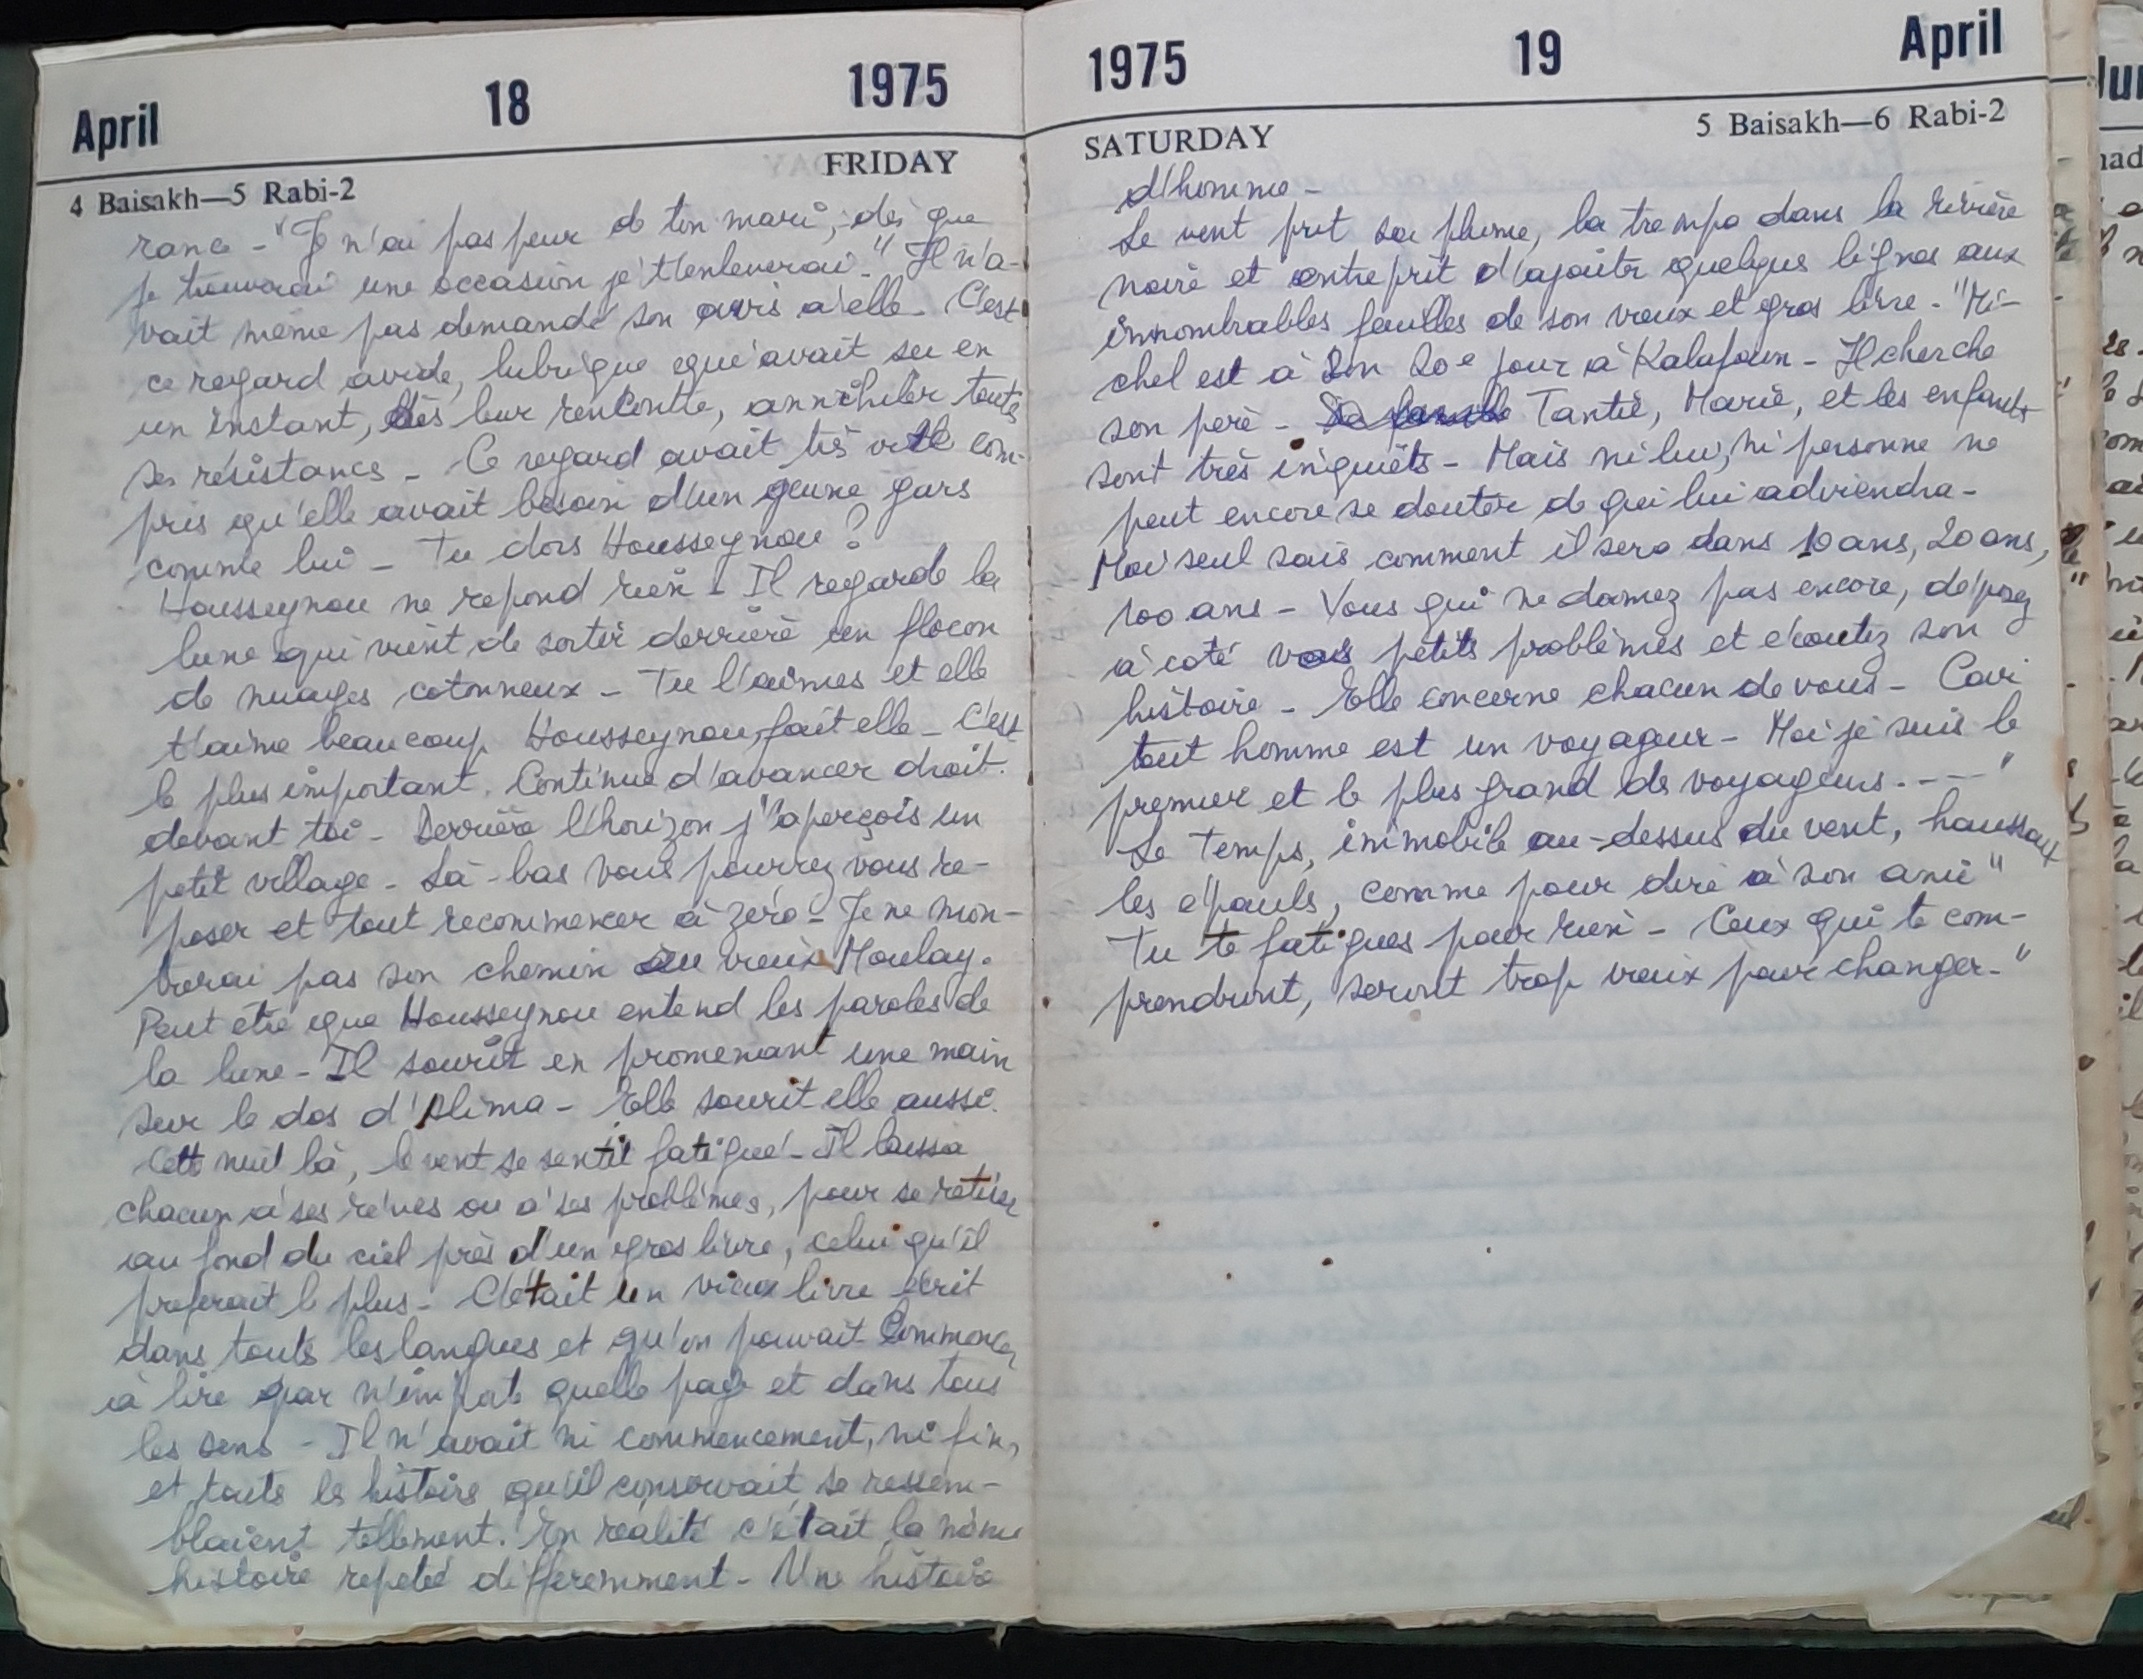 April 18 1975
FRIDAY
4 Baisakh—5 Rabi-2
rance - "Je n'ai pas peur de ton mari, dès que
je trouverai une occasion je t'enleverai." Il n'a-
vait même pas demandé son avis à elle - C'est
ce regard avide, lubrique qu'avait su en
un instant, dès leur rencontre, annihiler toutes
ses résistances - Ce regard avait très vite com-
pris qu'elle avait besoin d'un jeune gars
comme lui - Tu dors Housseynou ?
Housseynou ne repond rien - Il regarde la
lune qui vient de sortir derrière un flocon
de nuages cotonneux - Tu l'aimes et elle
t'aime beaucoup Housseynou, fait elle - C'est
le plus important. Continue d'avancer droit
devant toi - Derrière l'horizon j'aperçois un
petit village - Là-bas vous pourrez vous re-
poser et tout recommencer à zéro - Je ne mon-
trerai pas son chemin au vieux Moulay.
Peut être que Housseynou entend les paroles de
la lune - Il sourit en promenant une main
sur le dos d'Alima - Elle sourit elle aussi.
Cette nuit là, le vent se sentit fatigué - Il laissa
chacun à ses rêves ou à ses problèmes, pour se retirer
au fond du ciel près d'un gros livre, celui qu'il
preferait le plus - C'était un vieux livre écrit
dans toutes les langues et qu'on pouvait commencer
à lire par n'importe quelle page et dans tous
les sens - Il n'avait ni commencement, ni fin,
et toutes les histoires qu'il conservait se ressem-
blaient tellement. En realité c'était la même
histoire repetée differemment - Une histoire
1975 19 April
SATURDAY
5 Baisakh—6 Rabi-2
d'homme -
Le vent prit sa plume, la trempa dans la rivière
noire et entreprit d'ajouter quelques lignes aux
innombrables feuilles de son vieux et gros livre - "Mi-
chel est à son 20e jour à Kalafoun - Il cherche
son père - Tantie, Marie, et les enfants
sont très inquiets - Mais ni lui, ni personne ne
peut encore se douter de qui lui adviendra -
Moi seul sais comment il sera dans 10 ans, 20 ans,
100 ans - Vous qui ne dormez pas encore, déposez
à coté vos petits problèmes et écoutez son
histoire - Elle concerne chacun de vous - Car
tout homme est un voyageur - Moi je suis le
premier et le plus grand des voyageurs. - - - "
Le Temps, immobile au-dessus du vent, haussa
les épaules, comme pour dire à son ami "
Tu te fatigues pour rien - Ceux qui te com-
prendront, seront trop vieux pour changer - "